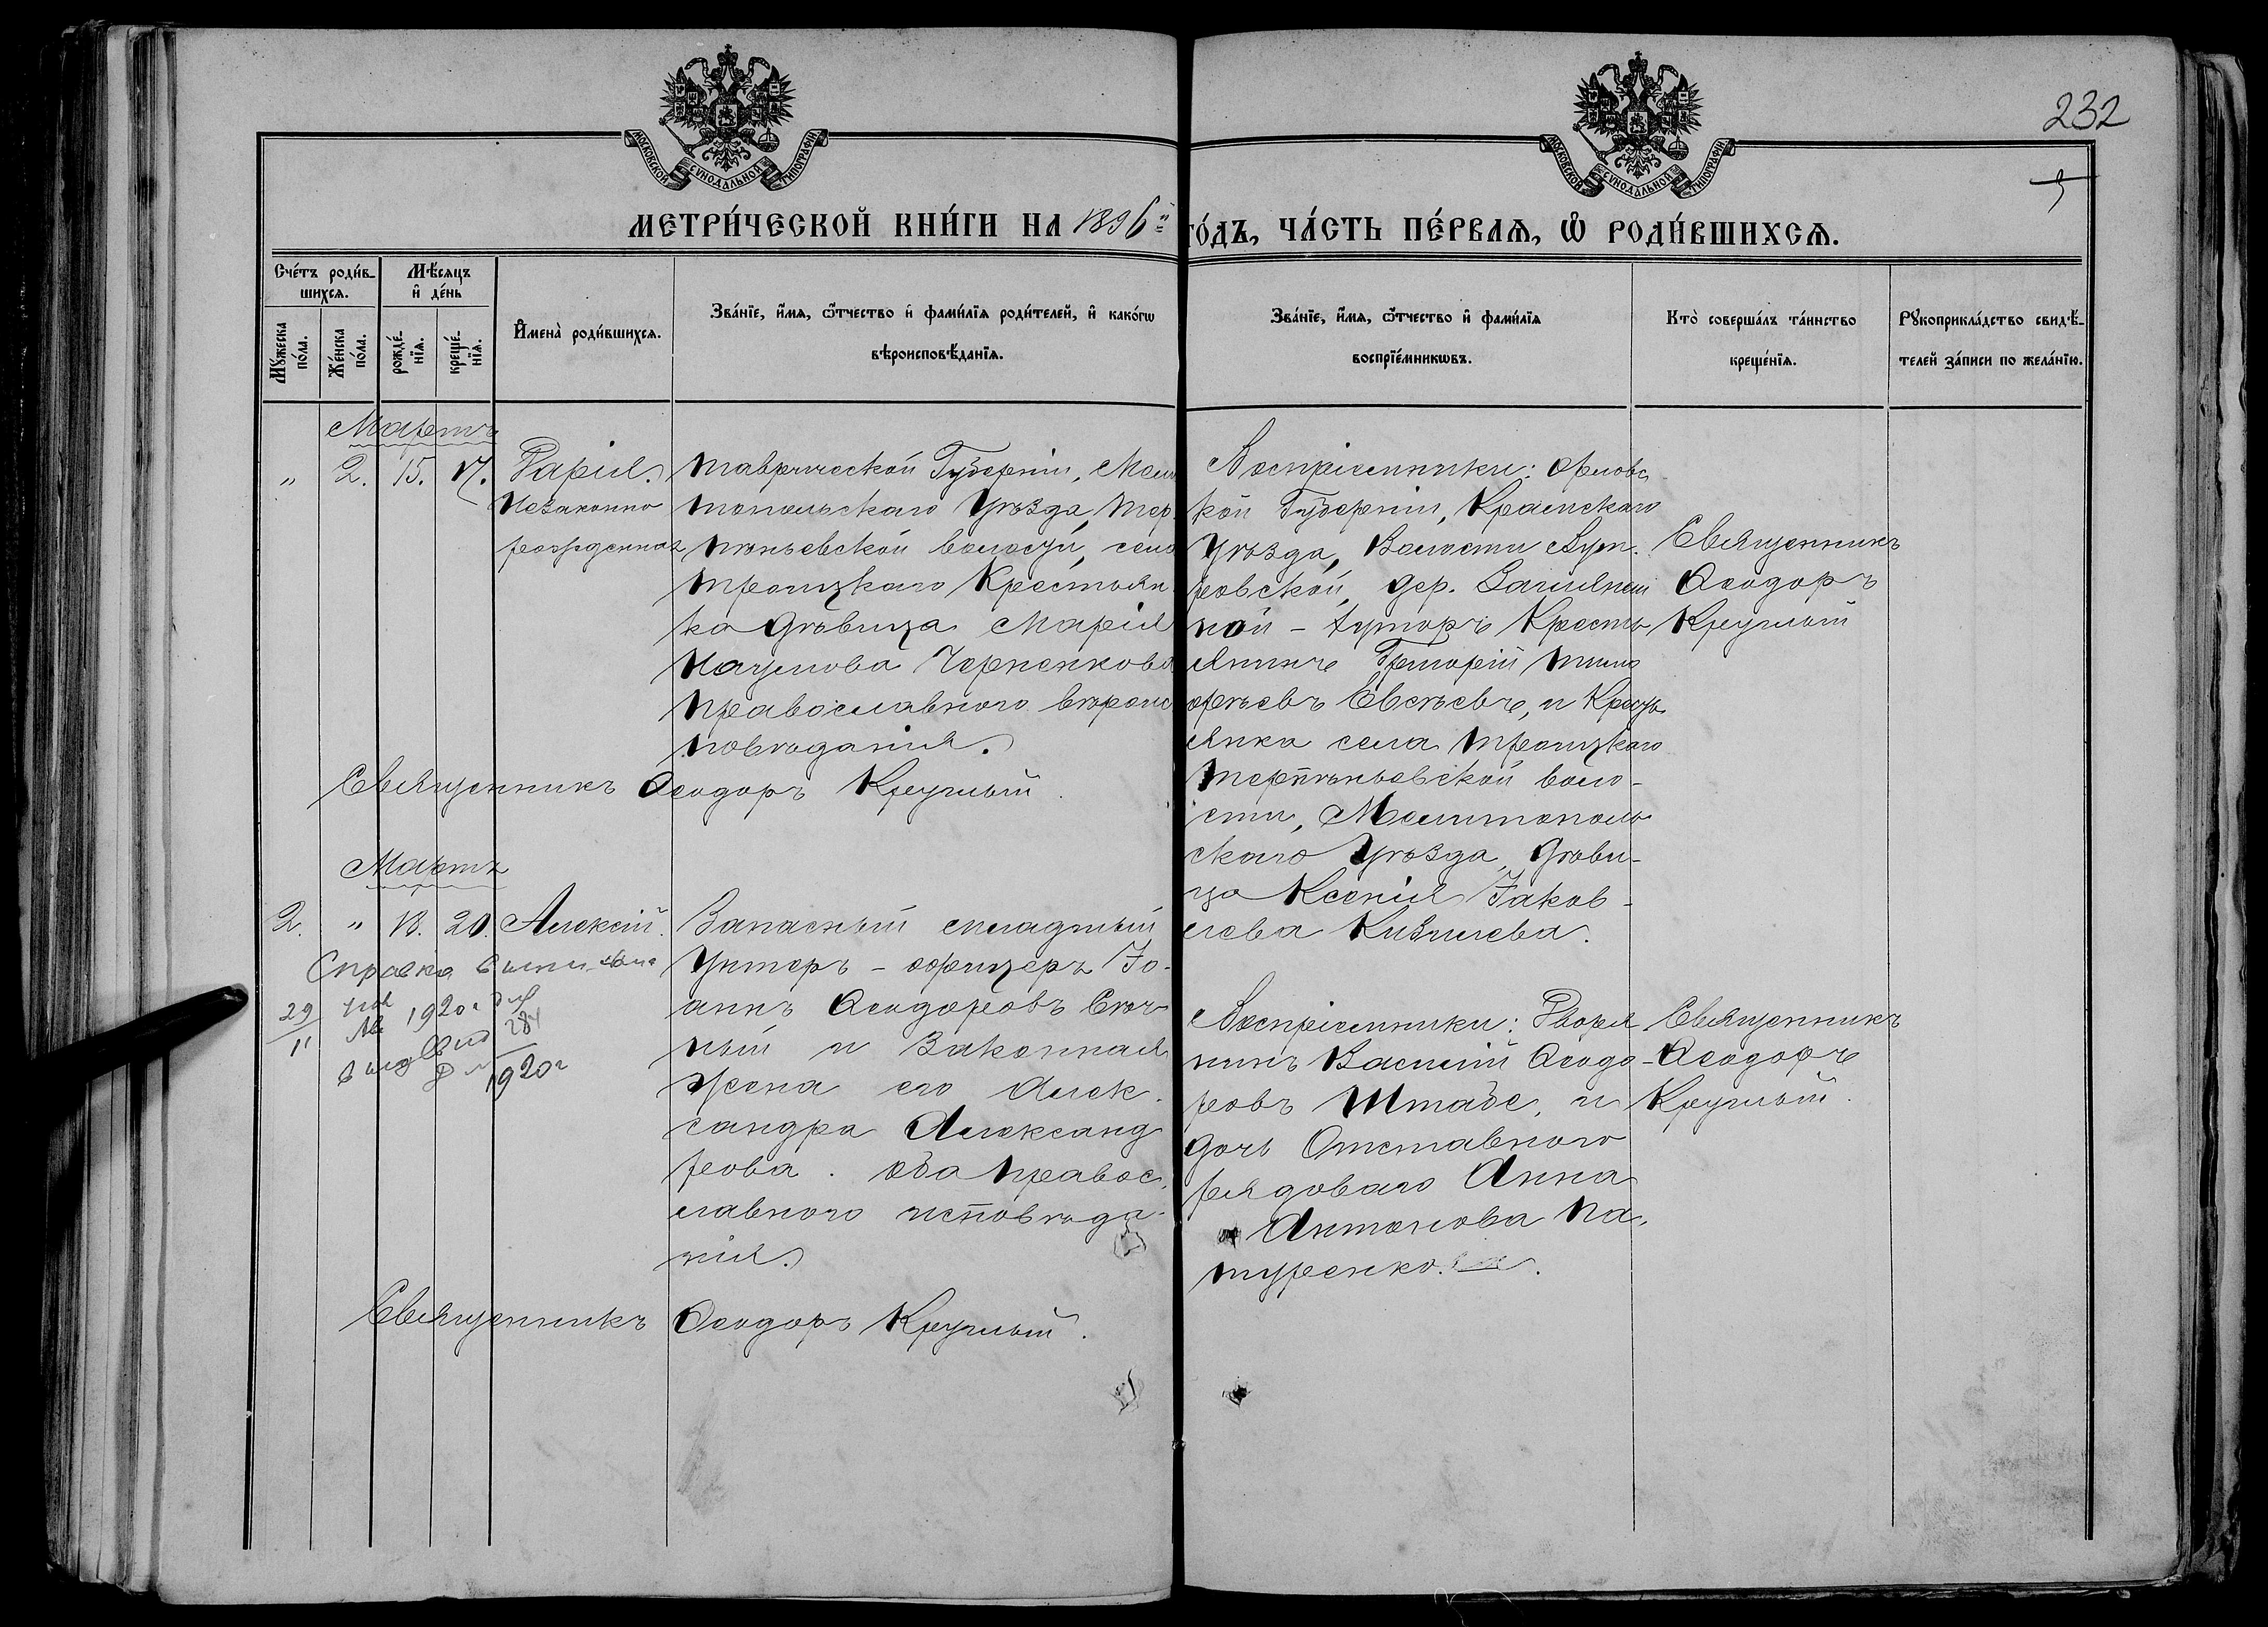 232
5
МОСКОВСКОЙ СѴНОДАЛЬНОЙ ТИПОГРАФІИ
МОСКОВСКОЙ СѴНОДАЛЬНОЙ ТИПОГРАФІИ
МЕТРИ́ЧЕСКОЙ КНИ́ГИ НА 1896й
ГО́ДЪ, ЧА́СТЬ ПЕ́РВАѦ, Ѡ҆ РОДИ́ВШИХСѦ.
Сче́тъ роди́в-
шихсѧ.
Мѣ́сѧцъ
и҆ де́нь
Мꙋ́жеска
по́ла.
Же́нска
по́ла.
рожде́-
нїѧ.
креще́-
нїѧ.
И҆мена̀ роди́вшихсѧ.
Зва́нїе, и҆́мѧ, ѻ҆́тчество и҆ фами́лїѧ роди́телей, и҆ како́гѡ
вѣроисповѣ́данїѧ.
Зва́нїе, и҆́мѧ, ѻ҆́тчество и҆ фами́лїѧ
воспрїе́мникѡвъ.
Кто̀ соверша́лъ та́инство
креще́нїѧ.
Рꙋкоприкла́дство свидѣ́-
телей за́писи по жела́нїю.
Мартъ
" 2. 15. 17. Дарія.
Незаконно
рожденная
Таврической Губерніи, Мели
топольскаго Уѣзда, Тер-
пѣньевской волости, села
Троицкаго Крестьян
ка Дѣвица Марія
Наумова Черненкова
Православнаго вѣроис
повѣданія.
Священникъ Ѳеодоръ Круглый.
Воспріемники: Орловс
кой Губерніи, Кромскаго
Уѣзда, Волости
ровской, дер.
ной - Хуторъ Кресть
янинъ Григорій Тимо
ѳѣевъ Евсѣевъ, и Кресть
янка села Троицкаго
Терпѣньевской воло-
сти, Мелитополь
скаго Уѣзда, Дѣви-
ца Ксенія Іаков-
лева Кизилева.
Священникъ
Ѳеодоръ
Круглый
Мартъ
2. " 18. 20. Алексій.
Справка
29
11
1920 г
284
1920 г
Запасный младшый
Унтеръ - офицеръ Іо-
аннъ Ѳеодоровъ
ный и Законная
жена его Алек-
сандра Александ
рова. оба Правос-
лавнаго исповѣда-
нія.
Священникъ Ѳеодоръ Круглый.
Воспріемники: Дворя
нинъ Василій Ѳеодо-
ровъ Штабе, и
дочь Отставного
рядоваго Анна
Антонова Па-
туренко.
Священникъ
Ѳеодоръ
Круглый.